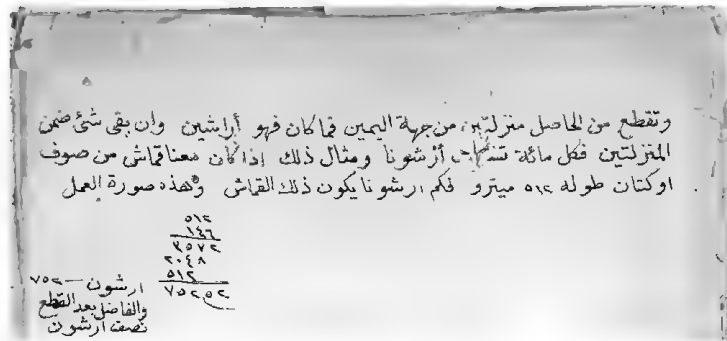 وتقطع من الحاصل منزلتين من جهة اليمين فما كان فهو أراشين وان بقى شئ ضمن
المنزلتين فكل مائة أرشونا ومثال ذلك إذا كان معنا قماش من صوف
اوكتان طوله ٥١٢ ميترو فكم ارشونا يكون ذلك القماش وهذه صورة العمل
٥١٢
١٤٦
٣٥٧٢
٢٠٤٨
٥١٢
٧٥٢٥٢
ارشون — ٧٥٢
والفاضل بعد القطع
نصف ارشون